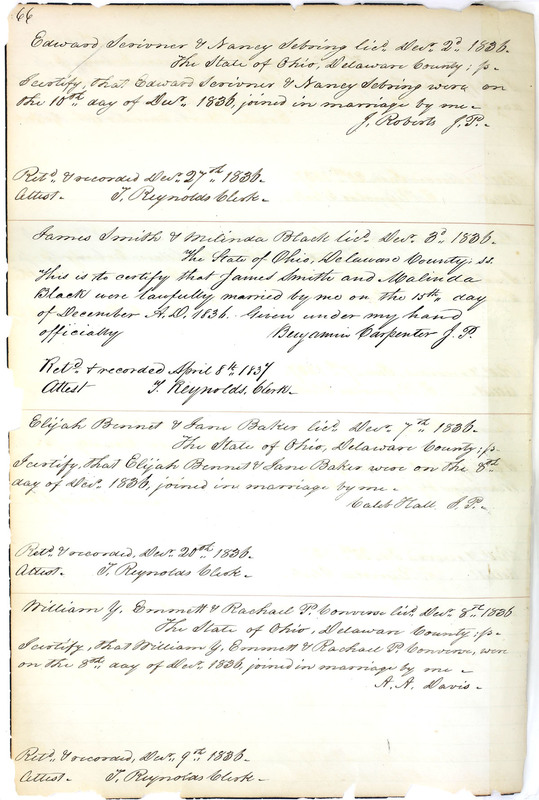 66
Edward Scrivner & Nancy Sebring licd. Decr. 2d. 1836.
The State of Ohio, Delaware County; ss.
I certify, that Edward Scrivner & Nancy Sebring were on
the 10th day of Decr. 1836, joined in marriage by me.
J. Roberts J.P.
Retd. & recorded Decr. 27th 1836.
Attest. T. Reynolds Clerk.
James Smith & Milinda Black licd. Decr. 3d. 1836.
The State of Ohio, Delaware County; ss.
This is to certify that James Smith and Malinda
Black were lawfully married by me on the 15th day
of December A.D. 1836. Given under my hand
officially Benjamin Carpenter J.P.
Retd. & recorded April 8th. 1837
Attest T. Reynolds, Clerk.
Elijah Bennet & Jane Baker licd. Decr. 7th. 1836.
The State of Ohio, Delaware County; ss.
I certify, that Elijah Bennet & Jane Baker were on the 8th
day of Decr. 1836, joined in marriage by me.
Caleb Hall J.P.
Retd. & recorded, Decr. 20th 1836.
Attest. T. Reynolds Clerk.
William Y. Emmett & Rachael P. Converse licd. Decr. 8th. 1836
The State of Ohio, Delaware County; ss.
I certify, that William Y. Emmett & Rachael P. Converse, were
on the 8th day of Decr. 1836, joined in marriage by me.
A. A. Davis.
Retd. & recorded, Decr. 9th 1836.
Attest. T. Reynolds Clerk.